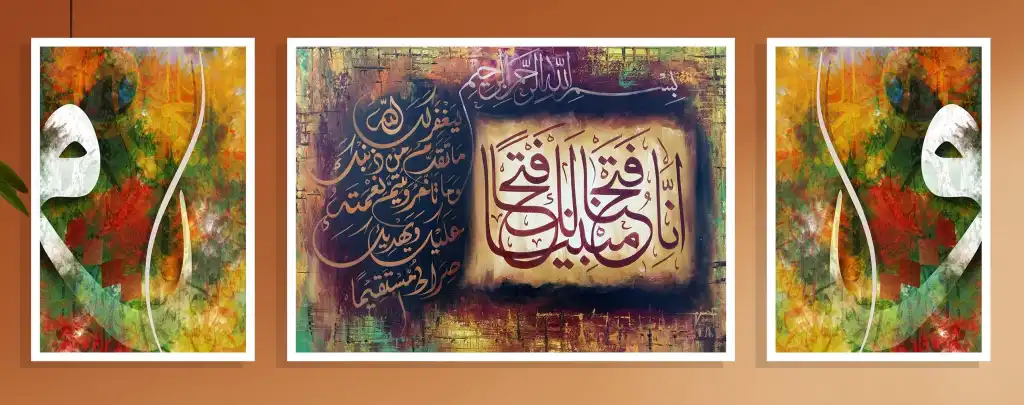 بسم الله الرحمن الرحيم
انا فتحنا لك فتحا مبينا
ليغفر لك الله
ما تقدم من ذنبك
وما تاخر ويتم نعمته
عليك ويهديك
صراطا مستقيما